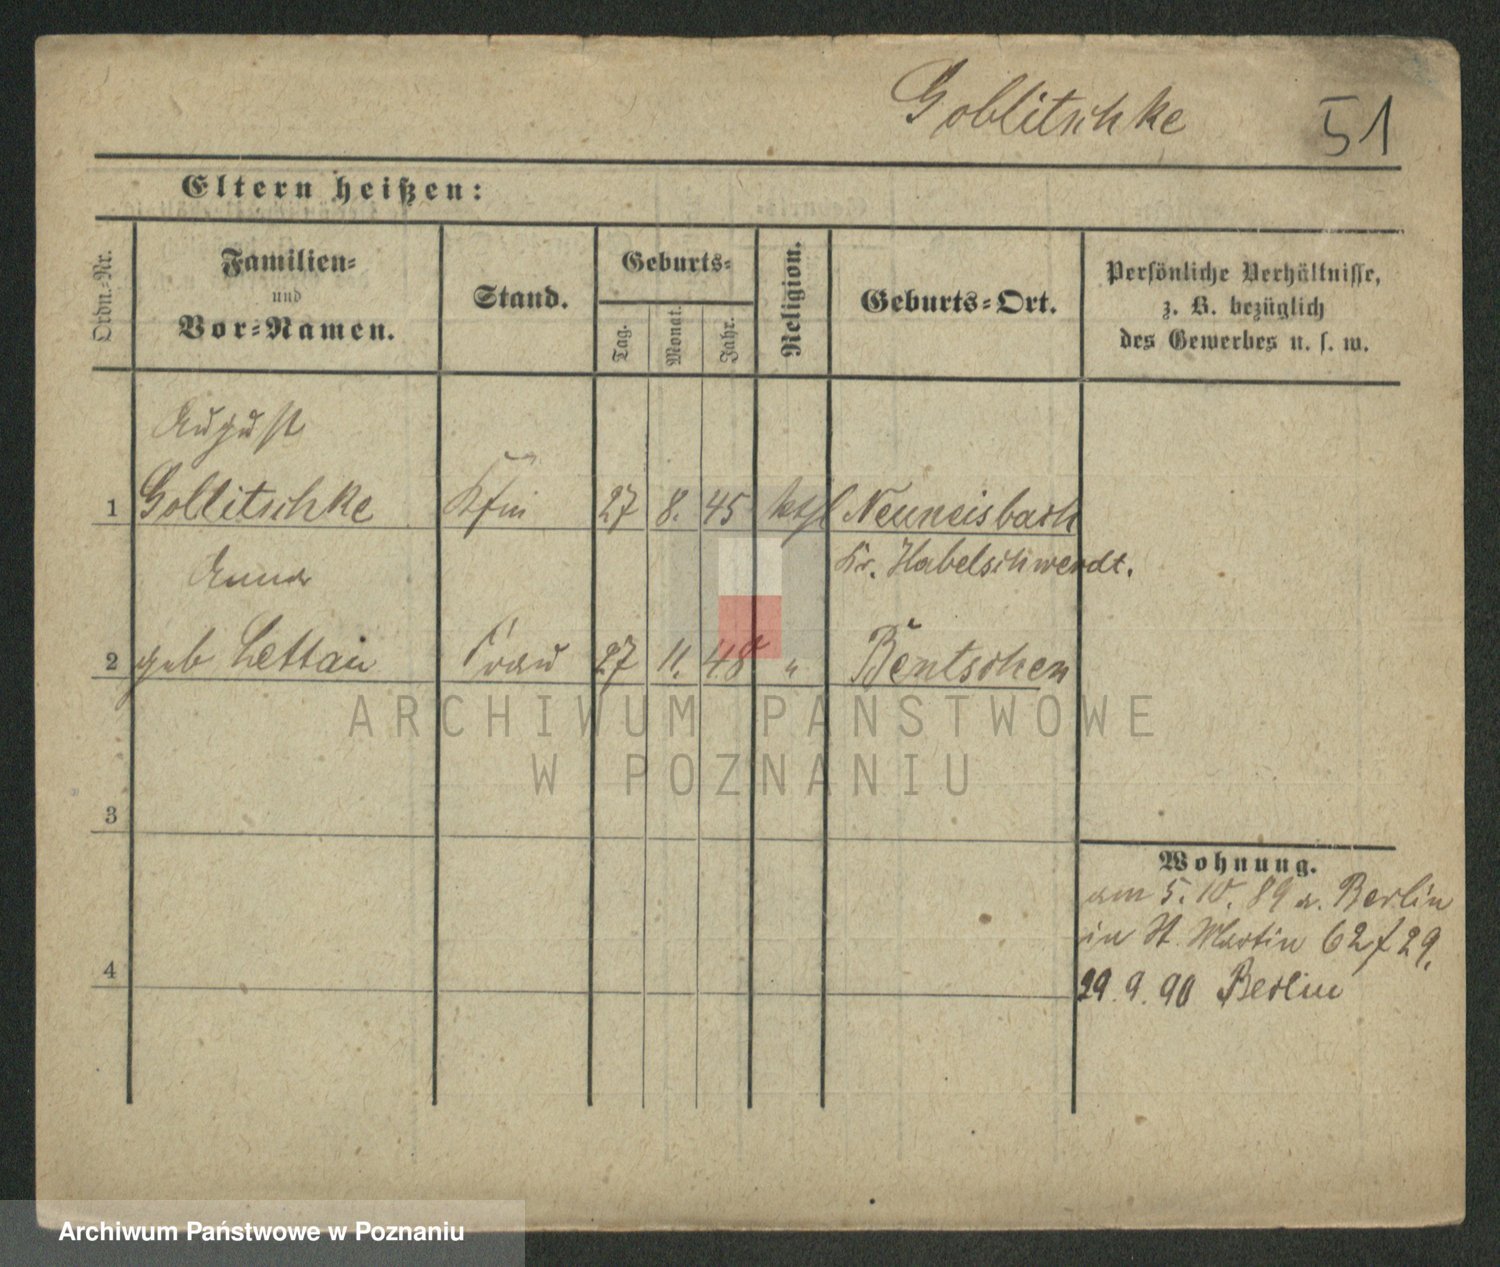 Goblitschke 51
Eltern heißen:
Ordn.-Nr.
Familien-
und
Vor-Namen.
Stand.
Geburts-
Tag.
Monat.
Jahr.
Religion.
Geburts-Ort.
Persönliche Verhältnisse,
z. B. bezüglich
des Gewerbes u. s. w.
August
1 Goblitschke Kfm 27 8. 45 kthl Neuneisbach
Kr. Habelschwerdt.
Anna
2 geb Lettau Frau 27 11. 48 " Bentschen
3
4
Wohnung.
am 5. 10. 89 a. Berlin
in St. Martin 62 f 29.
29. 9. 90 Berlin
ARCHIWUM PAŃSTWOWE
W POZNANIU
Archiwum Państwowe w Poznaniu